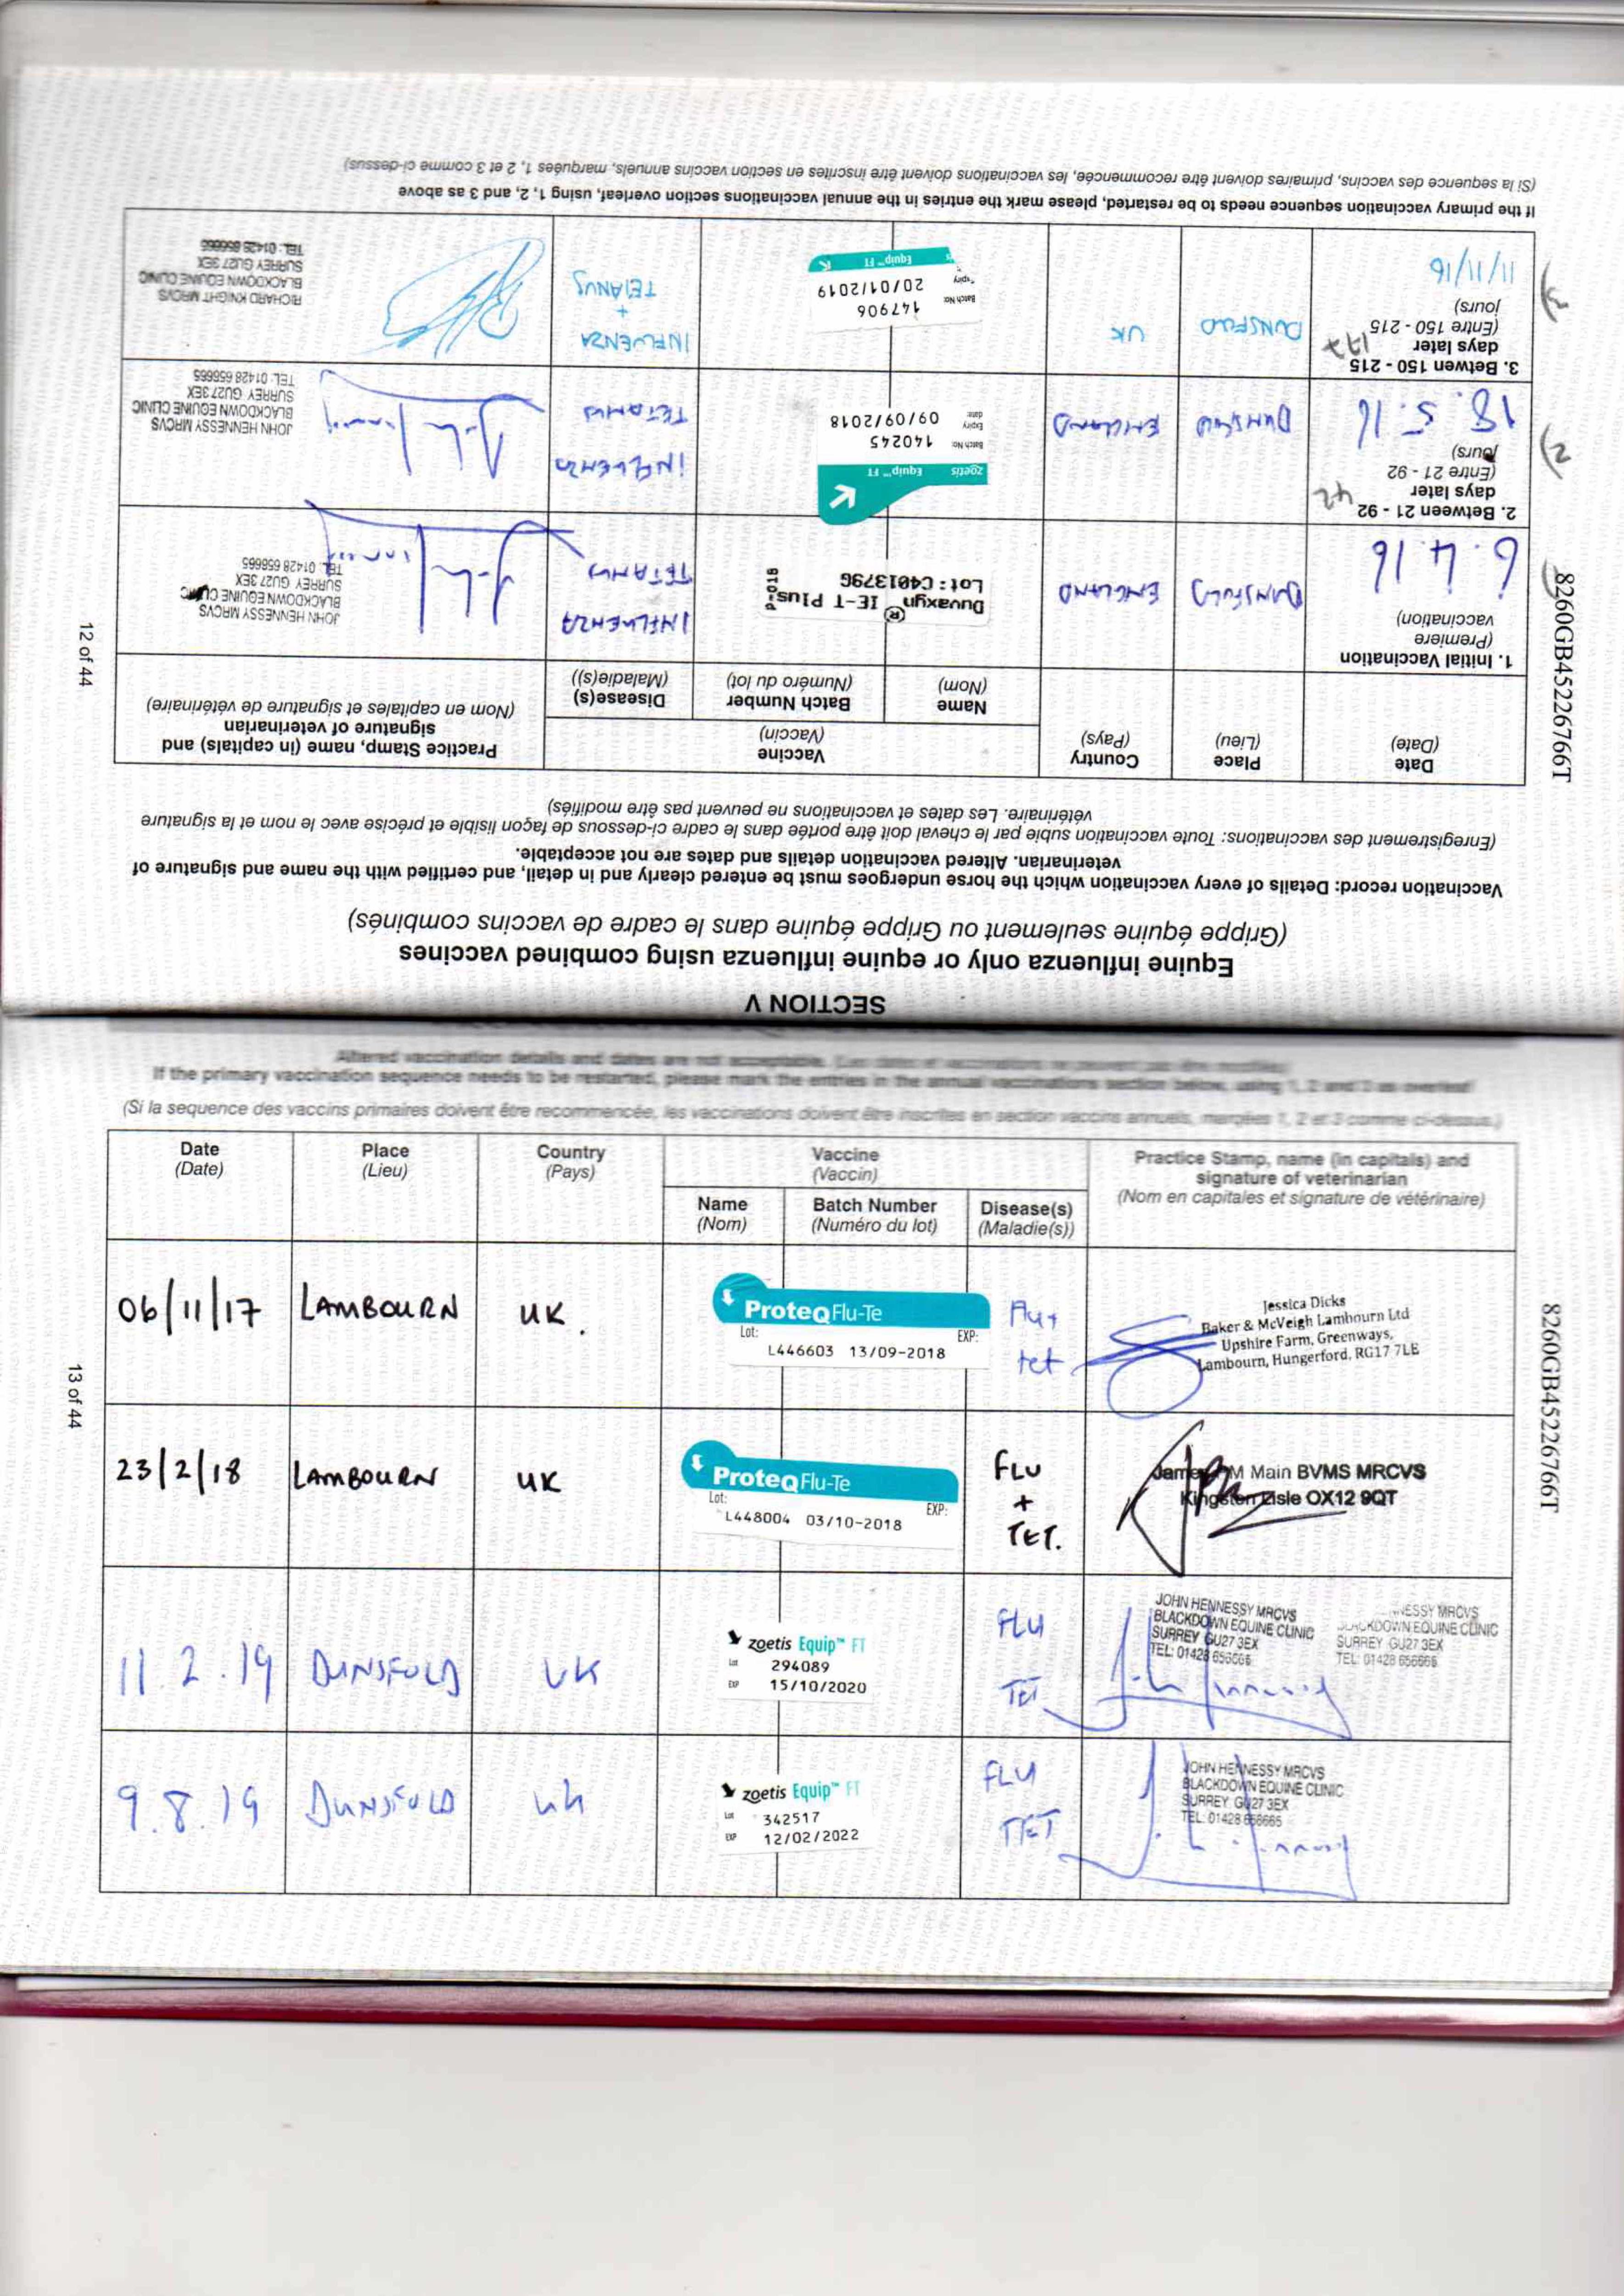 SECTION V
Equine influenza only or equine influenza using combined vaccines
(Grippe équine seulement ou Grippe équine dans le cadre de vaccins combinés)
Vaccination record: Details of every vaccination which the horse undergoes must be entered clearly and in detail, and certified with the name and signature of
veterinarian. Altered vaccination details and dates are not acceptable.
(Enregistrement des vaccinations: Toute vaccination subie par le cheval doit être portée dans le cadre ci-dessous de façon lisible et précise avec le nom et la signature
vétérinaire. Les dates et vaccinations ne peuvent pas être modifiés)
Date
(Date)
Place
(Lieu)
Country
(Pays)
Vaccine
(Vaccin)
Name
(Nom)
Batch Number
(Numéro du lot)
Disease(s)
(Maladie(s))
Practice Stamp, name (in capitals) and
signature of veterinarian
(Nom en capitales et signature de vétérinaire)
1. Initial Vaccination
(Premiere
vaccination)
6.4.16
DUNSFOLD
ENGLAND
Duvaxyn® IE-T Plus
Lot: C401379G
INFLUENZA
TETANUS
JOHN HENNESSY MRCVS
BLACKDOWN EQUINE CLINIC
SURREY GU27 3EX
TEL: 01428 656665
2. Between 21 - 92
days later
42
(Entre 21 - 92
jours)
18.5.16
(2)
DUNSFOLD
ENGLAND
zoetis Equip™ FT
Batch No: 140245
Expiry date: 09/09/2018
INFLUENZA
TETANUS
JOHN HENNESSY MRCVS
BLACKDOWN EQUINE CLINIC
SURREY GU27 3EX
TEL: 01428 656665
3. Betwen 150 - 215
days later
177
(Entre 150 - 215
jours)
11/11/16
DUNSFOLD
UK
Batch No: 147906
Expiry 20/01/2019
Equip™ FT
INFLUENZA
+
TETANUS
RICHARD KNIGHT MRCVS
BLACKDOWN EQUINE CLINIC
SURREY GU27 3EX
TEL: 01428 656665
If the primary vaccination sequence needs to be restarted, please mark the entries in the annual vaccinations section overleaf, using 1, 2, and 3 as above
(Si la sequence des vaccins, primaires doivent être recommencée, les vaccinations doivent être inscrites en section vaccins annuels, marquées 1, 2 et 3 comme ci-dessus)
8260GB45226766T
12 of 44
Altered vaccination details and dates are not acceptable.
If the primary vaccination sequence needs to be restarted, please mark the entries in the annual vaccinations section below, using 1, 2 and 3 as overleaf
(Si la sequence des vaccins primaires doivent être recommencée, les vaccinations doivent être inscrites en section vaccins annuels, margées 1, 2 et 3 comme ci-dessus.)
Date
(Date)
Place
(Lieu)
Country
(Pays)
Vaccine
(Vaccin)
Name
(Nom)
Batch Number
(Numéro du lot)
Disease(s)
(Maladie(s))
Practice Stamp, name (in capitals) and
signature of veterinarian
(Nom en capitales et signature de vétérinaire)
06/11/17
LAMBOURN
UK.
ProteqFlu-Te
Lot: EXP:
L446603 13/09-2018
Flu+
tet
Jessica Dicks
Baker & McVeigh Lambourn Ltd
Upshire Farm, Greenways,
Lambourn, Hungerford, RG17 7LE
23/2/18
LAMBOURN
UK
ProteqFlu-Te
Lot: EXP:
L448004 03/10-2018
FLU
+
TET.
M Main BVMS MRCVS
Kingston Lisle OX12 9QT
11.2.19
DUNSFOLD
UK
zoetis Equip™ FT
Lot 294089
EXP 15/10/2020
FLU
TET
JOHN HENNESSY MRCVS
BLACKDOWN EQUINE CLINIC
SURREY GU27 3EX
TEL: 01428 656665
MRCVS
EQUINE CLINIC
SURREY GU27 3EX
TEL: 01428 656665
9.8.19
DUNSFOLD
UK
zoetis Equip™ FT
Lot 342517
EXP 12/02/2022
FLU
TET
JOHN HENNESSY MRCVS
BLACKDOWN EQUINE CLINIC
SURREY GU27 3EX
TEL: 01428 656665
8260GB45226766T
13 of 44